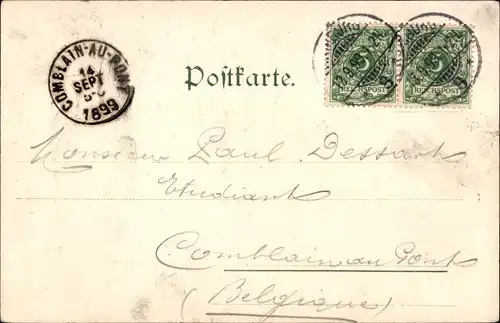 COMBLAIN-AU-PONT
14
SEPT
1899
Postkarte.
5 5
REICHSPOST REICHSPOST
Monsieur Paul Dessart
Etudiant
Comblain au Pont
(Belgique)